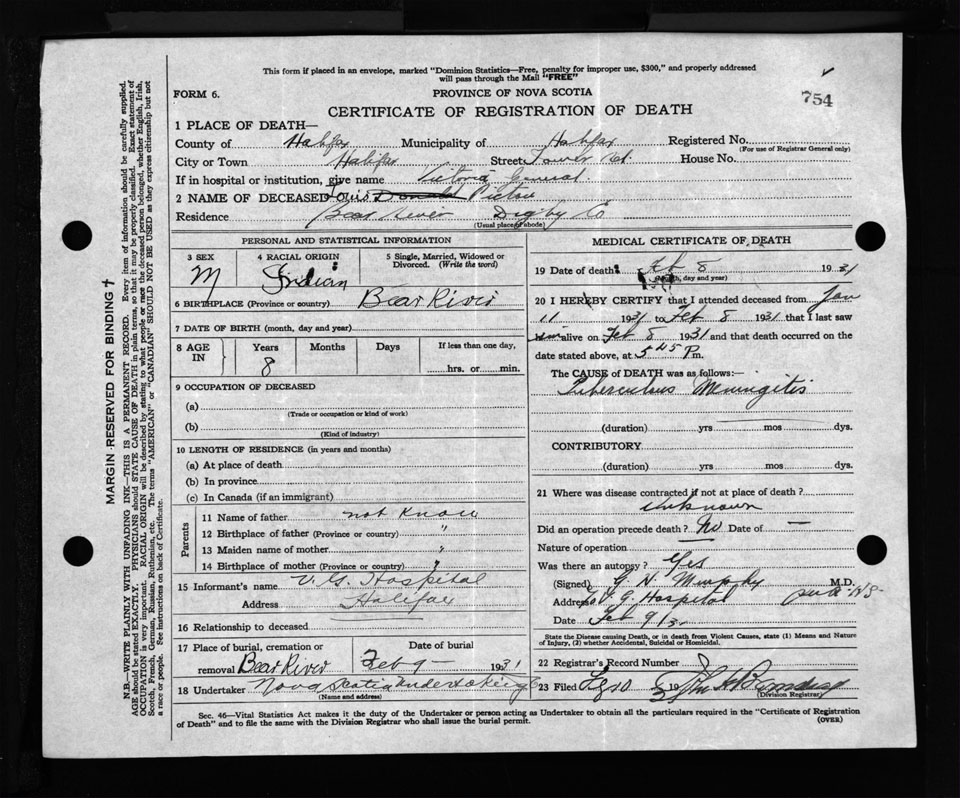 This form if placed in an envelope, marked "Dominion Statistics—Free, penalty for improper use, $300," and properly addressed
will pass through the Mail "FREE"
754
FORM 6.
PROVINCE OF NOVA SCOTIA
CERTIFICATE OF REGISTRATION OF DEATH
1 PLACE OF DEATH—
County of Halifax Municipality of Halifax Registered No.
(For use of Registrar General only)
City or Town Halifax Street Tower Rd. House No.
If in hospital or institution, give name Victoria General
2 NAME OF DECEASED Louis Donald Pictou
Residence Bear River Digby Co
(Usual place of abode)
PERSONAL AND STATISTICAL INFORMATION
3 SEX
M
4 RACIAL ORIGIN
Indian
5 Single, Married, Widowed or Divorced. (Write the word)
6 BIRTHPLACE (Province or country) Bear River
7 DATE OF BIRTH (month, day and year)
8 AGE IN
Years Months Days If less than one day,
8
hrs. or min.
9 OCCUPATION OF DECEASED
(a)
(Trade or occupation or kind of work)
(b)
(Kind of industry)
10 LENGTH OF RESIDENCE (in years and months)
(a) At place of death
(b) In province
(c) In Canada (if an immigrant)
Parents
11 Name of father not know
12 Birthplace of father (Province or country) "
13 Maiden name of mother "
14 Birthplace of mother (Province or country) "
15 Informant's name V. G. Hospital
Address Halifax
16 Relationship to deceased
17 Place of burial, cremation or removal Bear River
Date of burial
Feb 9— 1931
18 Undertaker Nova Scotia Undertaking Co
(Name and address)
MEDICAL CERTIFICATE OF DEATH
19 Date of death Feb 8 1931
(Month, day and year)
20 I HEREBY CERTIFY that I attended deceased from Jan
11 1931 to Feb 8 1931 that I last saw
him alive on Feb 8 1931 and that death occurred on the
date stated above, at 5 45 P m.
The CAUSE of DEATH was as follows:—
Tuberculous Meningitis
(duration) yrs mos dys.
CONTRIBUTORY
(duration) yrs mos dys.
21 Where was disease contracted if not at place of death?
Unknown
Did an operation precede death? No Date of —
Nature of operation
Was there an autopsy? Yes
(Signed) G. H. Murphy M.D.
Address V. G. Hospital
Date Feb 9/3
State the Disease causing Death, or in death from Violent Causes, state (1) Means and Nature
of Injury, (2) whether Accidental, Suicidal or Homicidal.
22 Registrar's Record Number
23 Filed 19
(Division Registrar)
Sec. 46—Vital Statistics Act makes it the duty of the Undertaker or person acting as Undertaker to obtain all the particulars required in the "Certificate of Registration
of Death" and to file the same with the Division Registrar who shall issue the burial permit.
(OVER)
MARGIN RESERVED FOR BINDING†
N.B.—WRITE PLAINLY WITH UNFADING INK—THIS IS A PERMANENT RECORD. Every item of information should be carefully supplied.
AGE should be stated EXACTLY. PHYSICIANS should STATE CAUSE OF DEATH in plain terms, so that it may be properly classified. Exact statement of
OCCUPATION is very important. RACIAL ORIGIN will be described by stating to what people or race the deceased person belonged, whether English, Irish,
Scotch, French, German, Russian, Ruthenian, etc. The terms "AMERICAN" or "CANADIAN" SHOULD NOT BE USED as they express citizenship but not
a race or people. See instructions on back of Certificate.